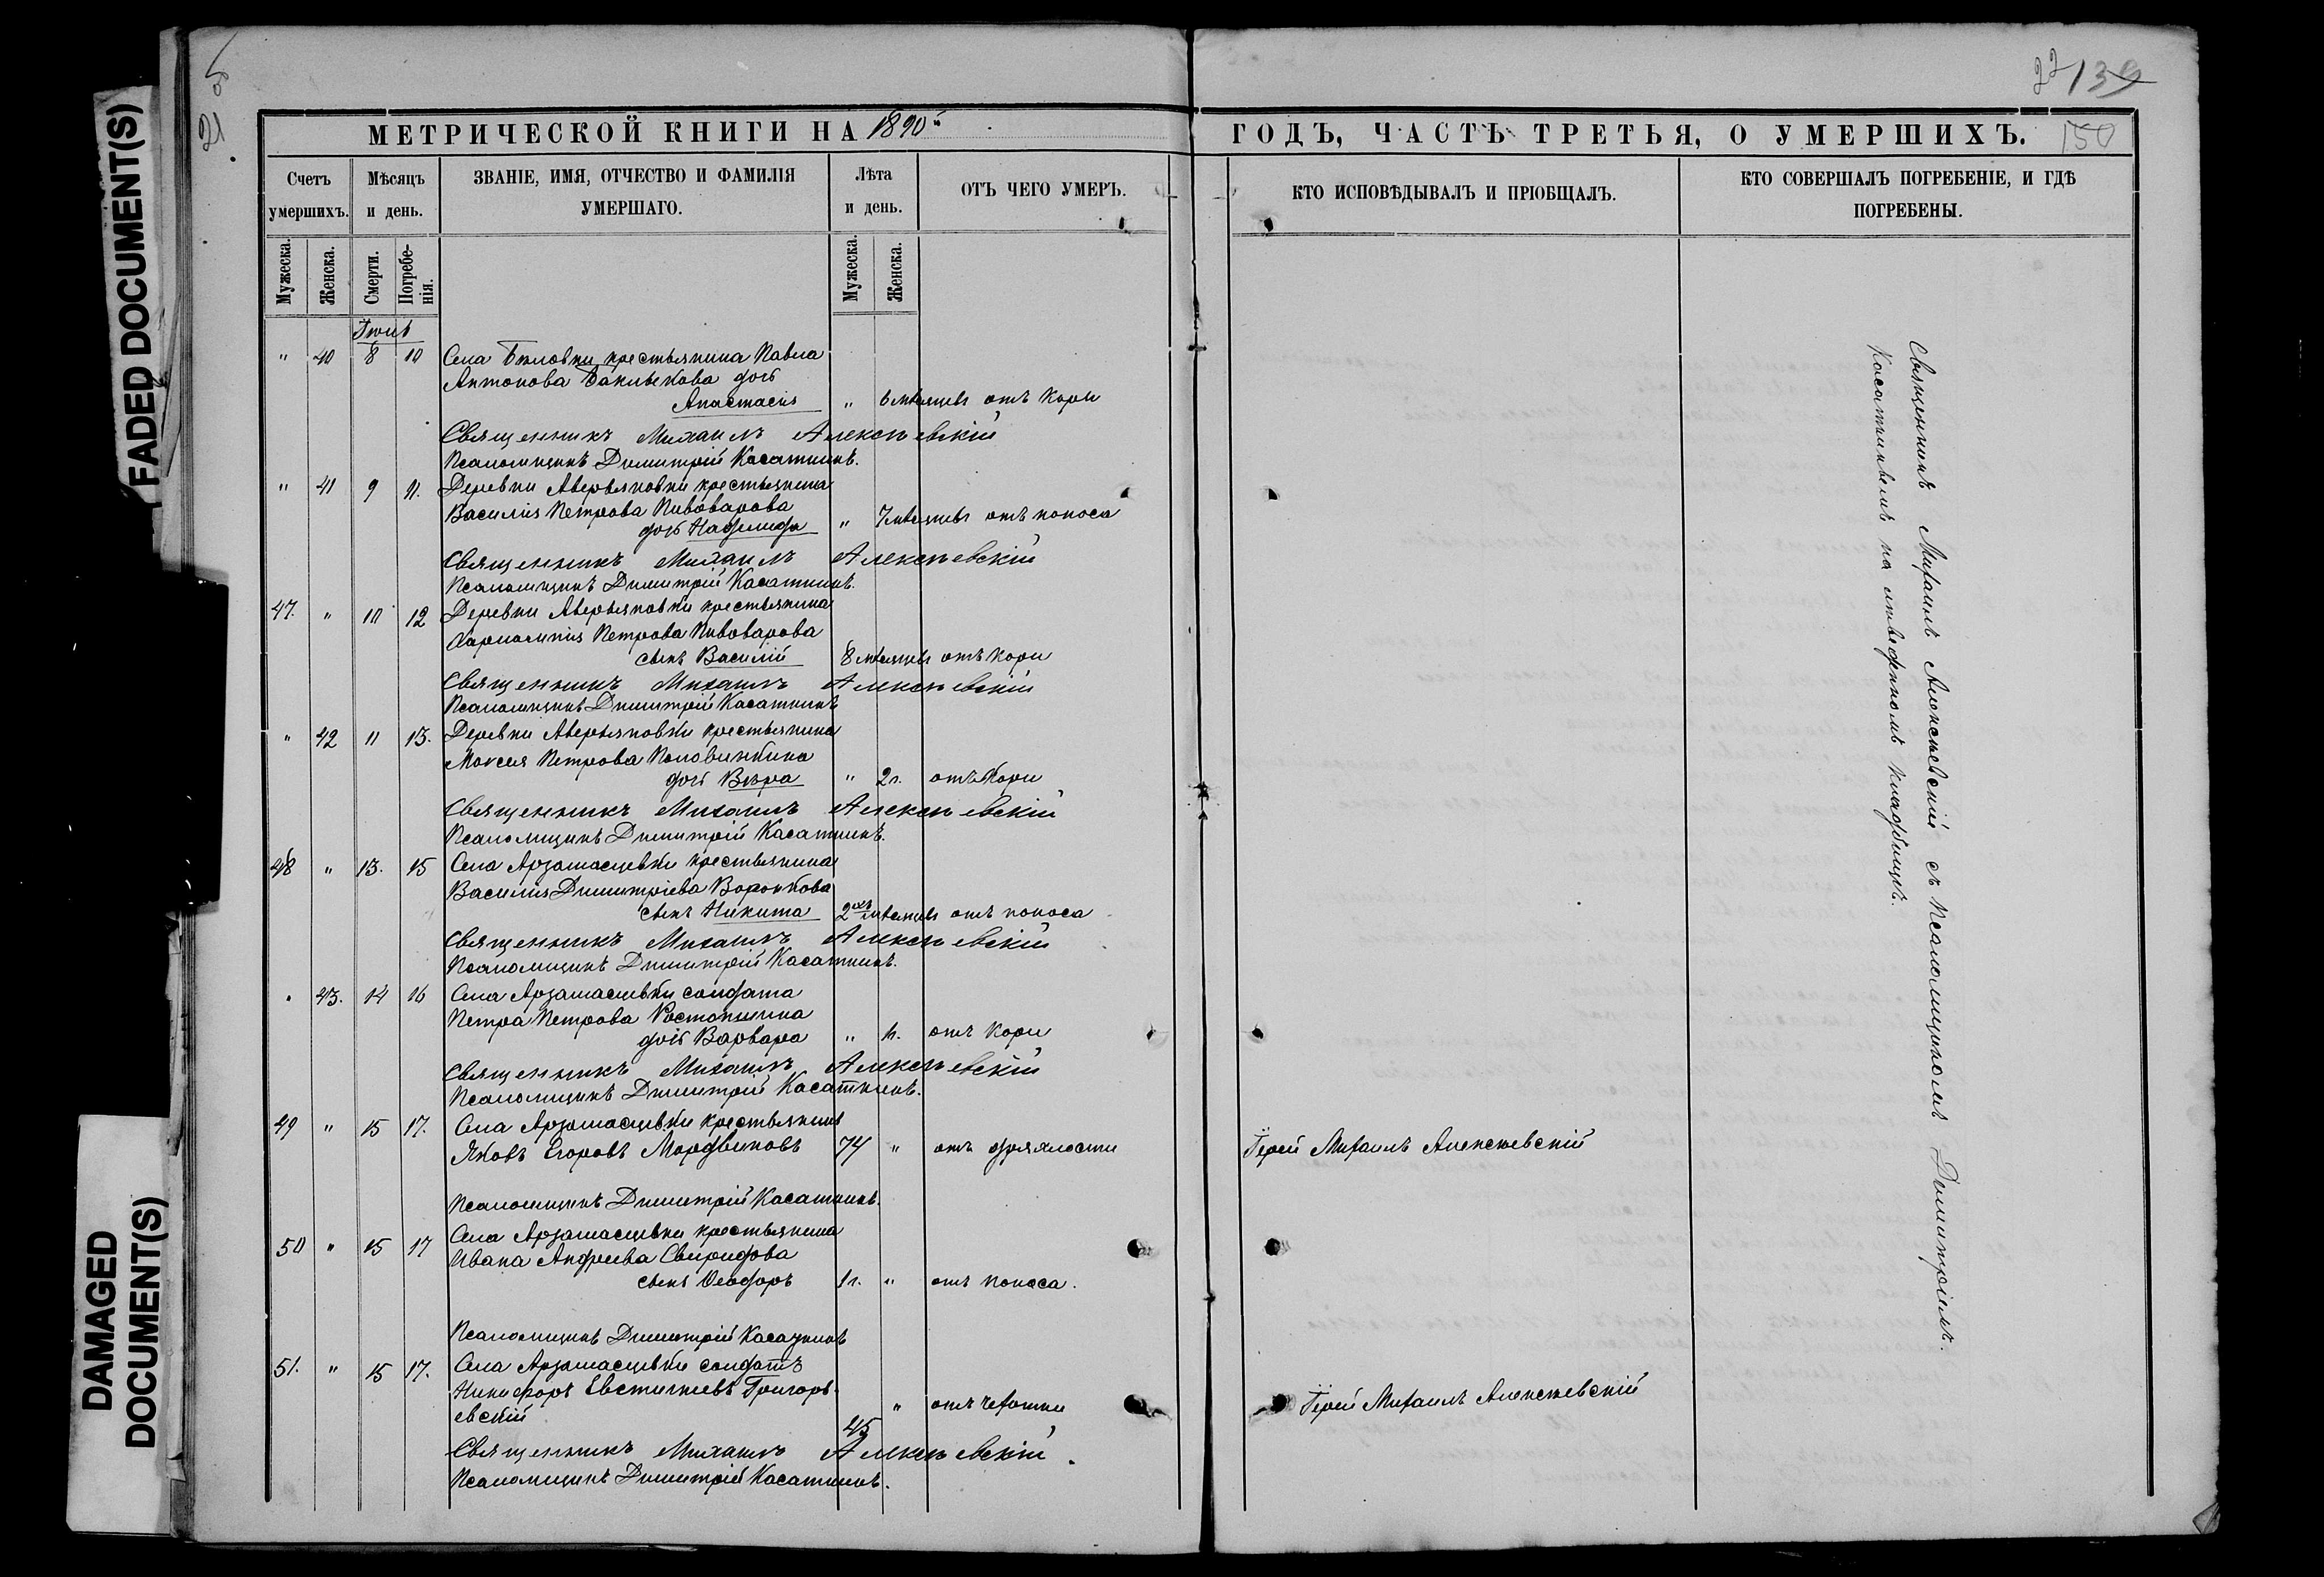 22 139
21
МЕТРИЧЕСКОЙ КНИГИ НА 1890й ГОДЪ, ЧАСТЬ ТРЕТЬЯ, О УМЕРШИХЪ. 150
Счетъ умершихъ.
Мѣсяцъ и день.
ЗВАНІЕ, ИМЯ, ОТЧЕСТВО И ФАМИЛІЯ УМЕРШАГО.
Лѣта и день.
ОТЪ ЧЕГО УМЕРЪ.
КТО ИСПОВѢДЫВАЛЪ И ПРІОБЩАЛЪ.
КТО СОВЕРШАЛЪ ПОГРЕБЕНІЕ, И ГДѢ ПОГРЕБЕНЫ.
Мужеска. Женска. Смерти. Погребе-нія. Мужеска. Женска.
Іюль
" 40 8 10 Села Бѣловки крестьянина Павла
Антонова дочь
Анастасія " 6 мѣсяцевъ отъ кори
Священникъ Михаилъ Алексѣевскій
Псаломщикъ Димитрій Касаткинъ.
" 41 9 11. Деревни Аверьяновки крестьянина
Василія Петрова Пивоварова
дочь Надежда " 7 мѣсяцевъ отъ поноса
Священникъ Михаилъ Алексѣевскій
Псаломщикъ Димитрій Касаткинъ.
47. " 10 12 Деревни Аверьяновки крестьянина
Харлампія Петрова Пивоварова
сынъ Василій 8 мѣсяцевъ отъ кори
Священникъ Михаилъ Алексѣевскій
Псаломщикъ Димитрій Касаткинъ
" 42 11 13. Деревни Аверьяновки крестьянина
Моисея Петрова Половинкина
дочь Вѣра " 2 л. отъ кори
Священникъ Михаилъ Алексѣевскій
Псаломщикъ Димитрій Касаткинъ.
48 " 13. 15 Села Арзамасцевки крестьянина
Василія Димитріева Воронкова
сынъ Никита 2хъ мѣсяцевъ отъ поноса
Священникъ Михаилъ Алексѣевскій
Псаломщикъ Димитрій Касаткинъ.
" 43. 14 16 Села Арзамасцевки солдата
Петра Петрова Ростопшина
дочь Варвара " 1 л. отъ кори
Священникъ Михаилъ Алексѣевскій
Псаломщикъ Димитрій Касаткинъ.
49 " 15 17. Села Арзамасцевки крестьянинъ
Яковъ Егоровъ Мордвиновъ 74 " отъ дряхлости Іерей Михаилъ Алексѣевскій
Псаломщикъ Димитрій Касаткинъ.
50 " 15 17 Села Арзамасцевки крестьянина
Ивана Андреева Свиридова
сынъ Ѳеодоръ 1 л. " отъ поноса.
Псаломщикъ Димитрій Касаткинъ
51. " 15 17. Села Арзамасцевки солдатъ
Никифоръ Евстигнеевъ Григорь-
евскій 45 " отъ чахотки Іерей Михаилъ Алексѣевскій
Священникъ Михаилъ Алексѣевскій.
Псаломщикъ Димитрій Касаткинъ.
Священникъ Михаилъ Алексѣевскій съ псаломщикомъ Димитріемъ
Касаткинымъ на отведенномъ кладбищѣ.
FADED DOCUMENT(S)
DAMAGED
DOCUMENT(S)